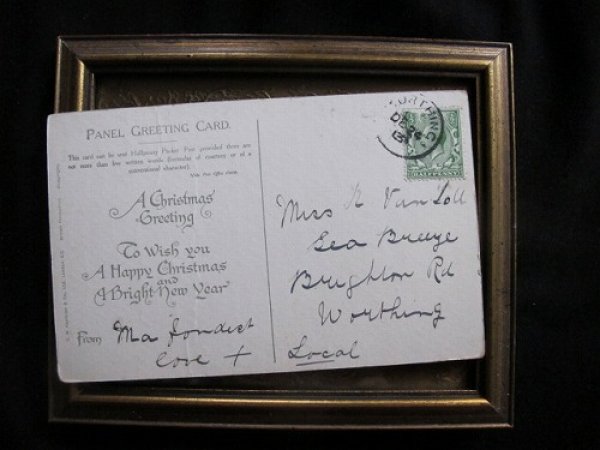 PANEL GREETING CARD.
This card can be sent Halfpenny Packet Post provided there are
not more than five written words (formulas of courtesy or of a
conventional character).
Vide Post Office Guide.
A Christmas
Greeting
To Wish you
A Happy Christmas
and
A Bright New Year
From Ma fondest
love +
WORTHING
DE
13
HALFPENNY
Miss K Van
Sea Breeze
Brighton Rd
Worthing
Local